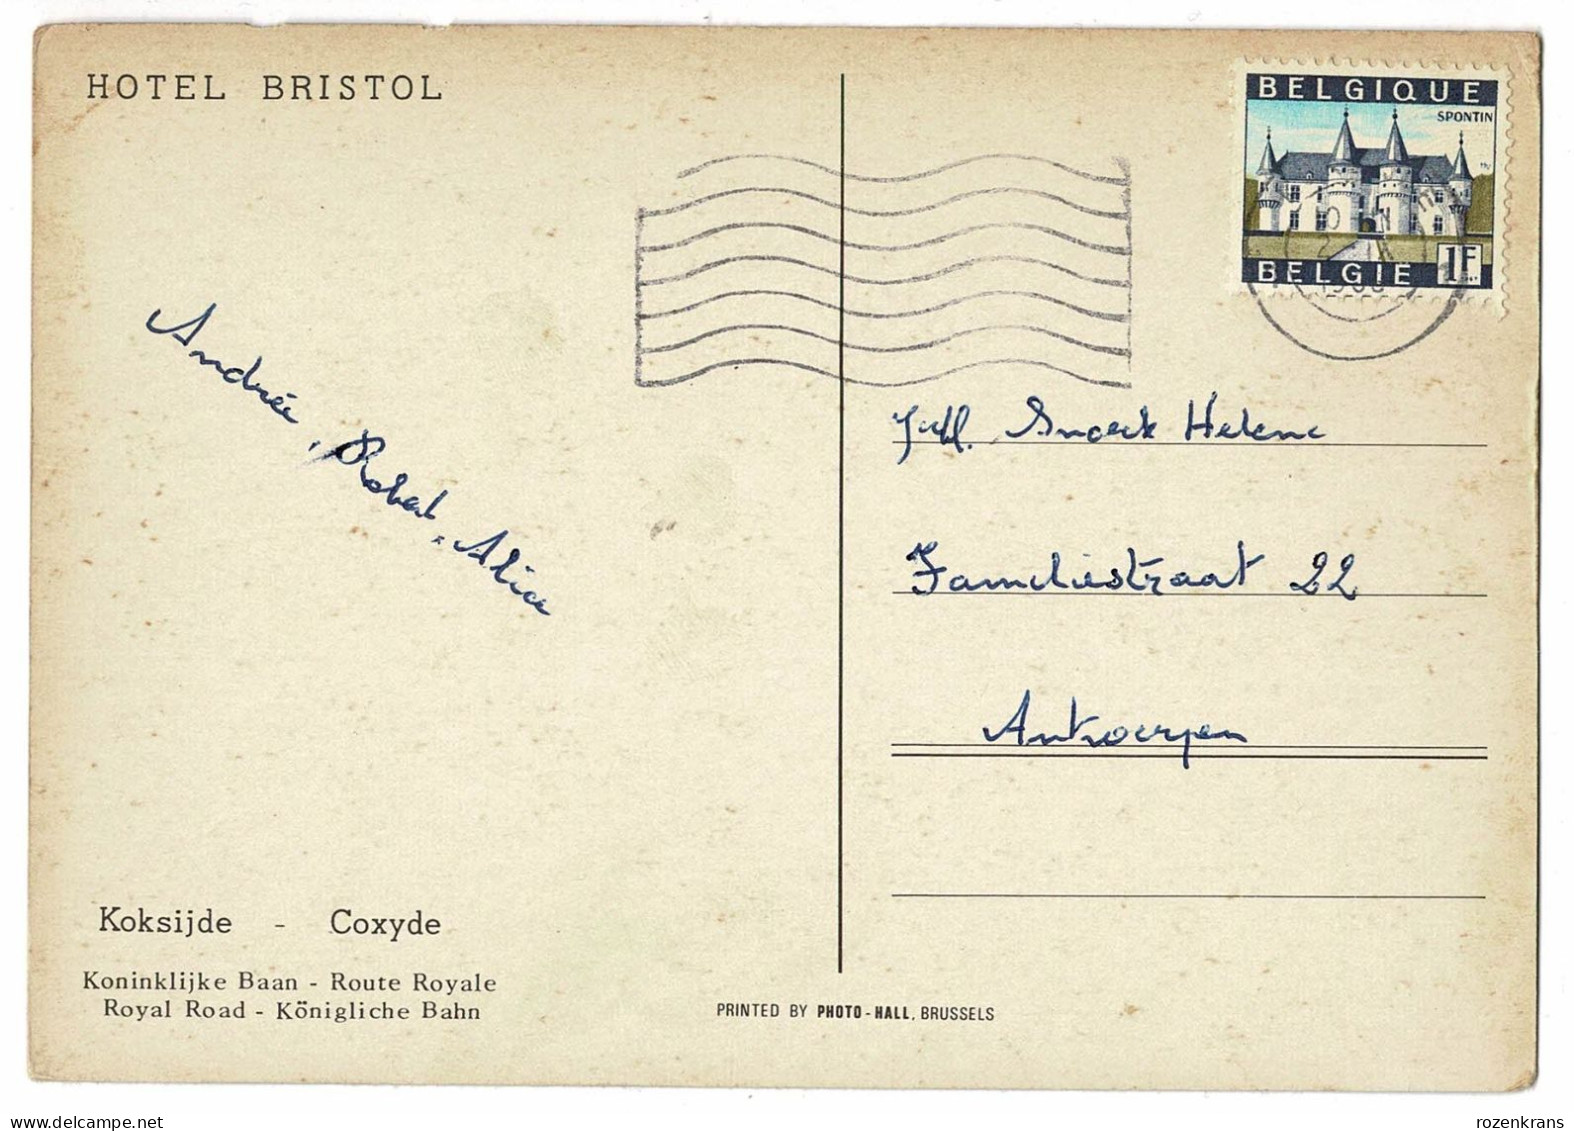 HOTEL BRISTOL
BELGIQUE
SPONTIN
BELGIE 1F
Andrée, Robert, Alice
Snoeck Helene
Familiestraat 22
Antwerpen
Koksijde - Coxyde
Koninklijke Baan - Route Royale
Royal Road - Königliche Bahn
PRINTED BY PHOTO-HALL, BRUSSELS
www.delcampe.net
rozenkrans